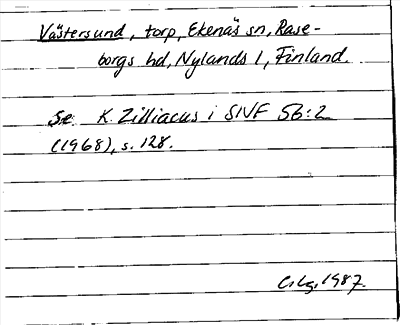 Västersund, torp, Ekenäs sn, Rase-
borgs hd, Nylands l, Finland.
Se: K. Zilliacus i SNF 56:2
(1968), s. 128.
1987